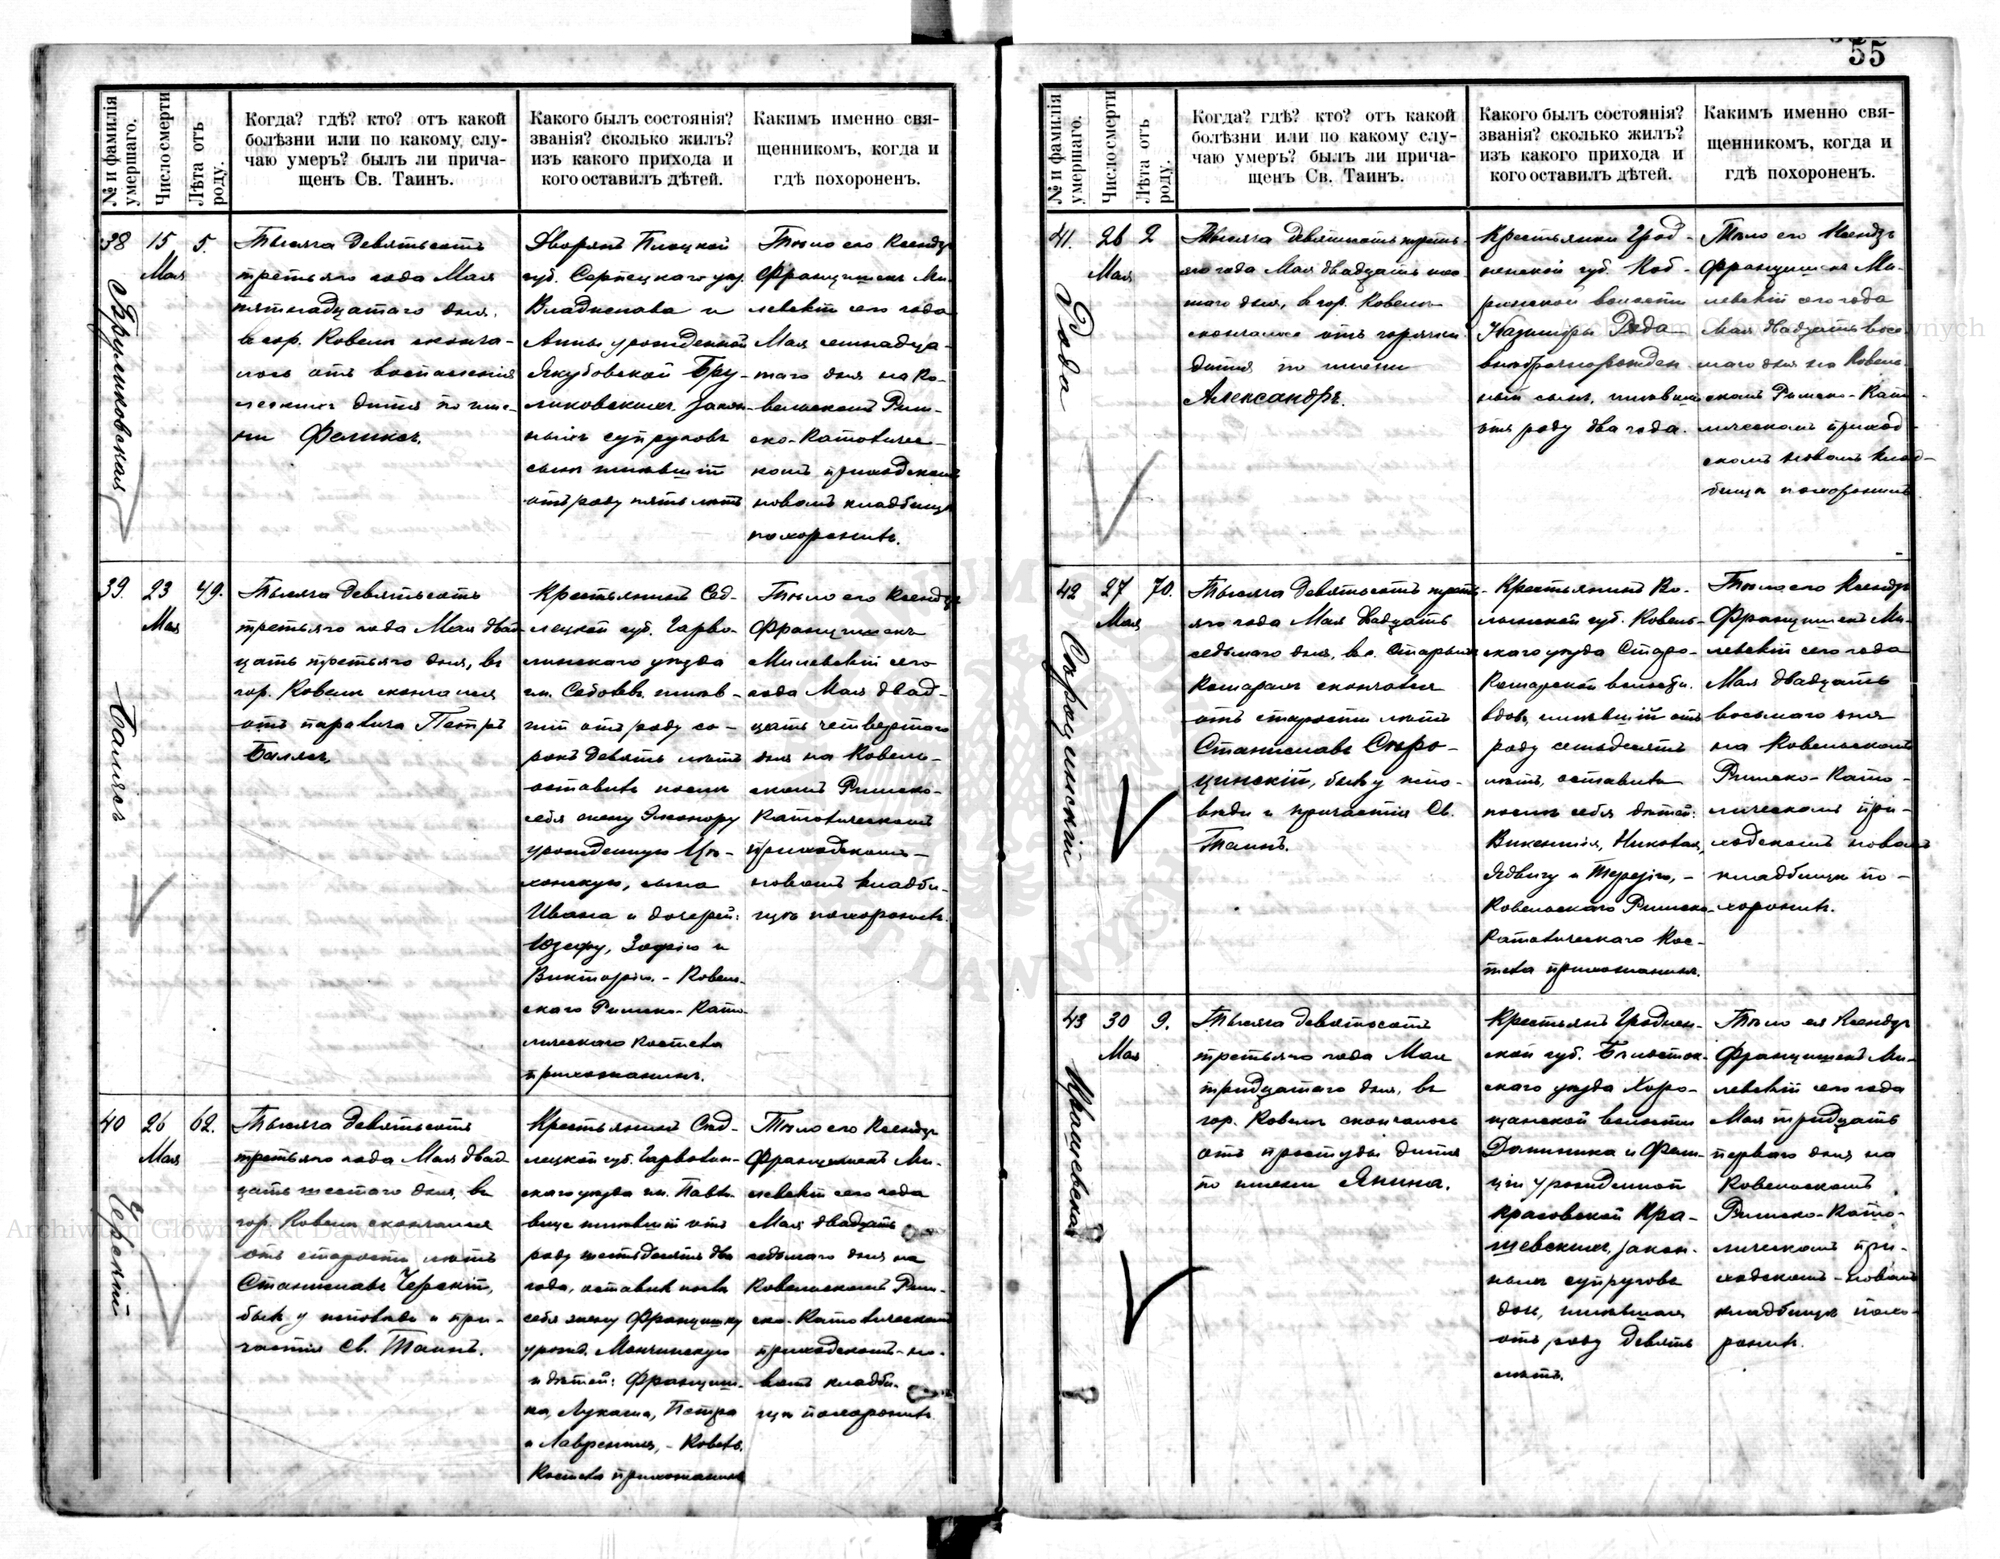 55
№ и фамилія умершаго.
Число смерти
Лѣта отъ роду.
Когда? гдѣ? кто? отъ какой
болѣзни или по какому слу-
чаю умеръ? былъ ли прича-
щенъ Св. Таинъ.
Какого былъ состоянія?
званія? сколько жилъ?
изъ какого прихода и
кого оставилъ дѣтей.
Какимъ именно свя-
щенникомъ, когда и
гдѣ похороненъ.
38
15
Мая
5.
Тысяча девятьсотъ
третьяго года Мая
пятнадцатаго дня,
въ гор. Ковелѣ сконча-
лось отъ воспаленія
легкихъ дитя по име-
ни Феликсъ.
Дворянъ Плоцкой
губ. Серпецкаго уѣз.
Владислава и
Анны урожденной
Якубовской Бру-
ликовскихъ закон-
ныхъ супруговъ
сынъ имѣвшій
отъ роду пять лѣтъ
Тѣло его Ксендзъ
Францишекъ Ми-
левскій сего года
Мая семнадца-
таго дня на Ко-
вельскомъ Рим-
ско-Католичес-
комъ приходскомъ
новомъ кладбищѣ
похоронилъ.
39.
23
Мая
49.
Баляс
Тысяча девятьсотъ
третьяго года Мая двад-
цать третьяго дня, въ
гор. Ковелѣ скончался
отъ паралича Петръ
Балясъ.
Крестьянинъ Сѣд-
лецкой губ. Гарво-
линскаго уѣзда
имѣв-
шій отъ роду со-
рокъ девять лѣтъ
оставивъ послѣ
себя жену Элеонору
урожденную
сына
Ивана и дочерей:
Юзефу, Зофію и
Викторію. - Ковель-
скаго Римско-Като-
лическаго костела
прихожанинъ.
Тѣло его Ксендзъ
Францишекъ
Милевскій сего
года Мая двад-
цать четвертаго
дня на Ковель-
скомъ Римско-
Католическомъ
приходскомъ
новомъ кладби-
щѣ похоронилъ.
40
26
Мая
62.
Черскій
Тысяча девятьсотъ
третьяго года Мая двад-
цать шестого дня, въ
гор. Ковелѣ скончался
отъ старости лѣтъ
Станиславъ Черскій,
былъ у исповѣди и при-
частія Св. Таинъ.
Крестьянинъ Сѣд-
лецкой губ. Гарволин-
скаго уѣзда
имѣвшій отъ
роду шестьдесятъ два
года, оставивъ послѣ
себя жену Францишку
урожд. Мончинскую
и дѣтей: Франциш-
ка, Лукаша, Петра
и Лаврентія, - Ковель.
Костела прихожанинъ
Тѣло его Ксендзъ
Францишекъ Ми-
левскій сего года
Мая двадцать
седьмаго дня на
Ковельскомъ Рим-
ско-Католическомъ
приходскомъ-но-
вомъ кладби-
щѣ похоронилъ.
№ и фамилія умершаго.
Число смерти
Лѣта отъ роду.
Когда? гдѣ? кто? отъ какой
болѣзни или по какому слу-
чаю умеръ? былъ ли прича-
щенъ Св. Таинъ.
Какого былъ состоянія?
званія? сколько жилъ?
изъ какого прихода и
кого оставилъ дѣтей.
Какимъ именно свя-
щенникомъ, когда и
гдѣ похороненъ.
41.
26
Мая
2
Тысяча девятьсотъ треть-
яго года Мая двадцать шес-
таго дня, въ гор. Ковелѣ
скончалось отъ горячки
дитя по имени
Александръ.
Крестьянки Грод-
ненской губ. Коб-
ринской волости
Казимиры
внѣбрачнорожден-
ный сынъ, имѣвшій
отъ роду два года.
Тѣло его Ксендзъ
Францишекъ Ми-
левскій сего года
Мая двадцать вось-
маго дня на Ковель-
скомъ Римско-Като-
лическомъ приход-
скомъ новомъ клад-
бищѣ похоронилъ.
42
27
Мая
70.
Скроцинскій
Тысяча девятьсотъ треть-
яго года Мая двадцать
седьмаго дня, въ с. Старыхъ
Кошарахъ скончался
отъ старости лѣтъ
Станиславъ Скро-
цинскій, былъ у испо-
вѣди и причастія Св.
Таинъ.
Крестьянинъ Во-
лынской губ. Ковель-
скаго уѣзда Старо-
Кошарской волости.
вдовъ, имѣвшій отъ
роду семьдесятъ
лѣтъ, оставивъ
послѣ себя дѣтей:
Викентія, Николая,
Ядвигу и Терезію, -
Ковельскаго Римско-
Католическаго Кос-
тела прихожанинъ.
Тѣло его Ксендзъ
Францишекъ Ми-
левскій сего года
Мая двадцать
восьмаго дня
на Ковельскомъ
Римско-Като-
лическомъ при-
ходскомъ новомъ
кладбищѣ по-
хоронилъ.
43
30
Мая
9.
Крашевская
Тысяча девятьсотъ
третьяго года Мая
тридцатаго дня, въ
гор. Ковелѣ скончалось
отъ простуды дитя
по имени Янина.
Крестьянъ Гроднен-
ской губ. Бѣлосток-
скаго уѣзда Хоро-
щанской волости
Доминика и Фели-
ціи урожденной
Красовской Кра-
шевскихъ, закон-
ныхъ супруговъ
дочь, имѣвшая
отъ роду девять
лѣтъ.
Тѣло ея Ксендзъ
Францишекъ Ми-
левскій сего года
Мая тридцать
перваго дня на
Ковельскомъ
Римско-Като-
лическомъ при-
ходскомъ-новомъ
кладбищѣ похо-
ронилъ.
Archiwum Główne Akt Dawnych